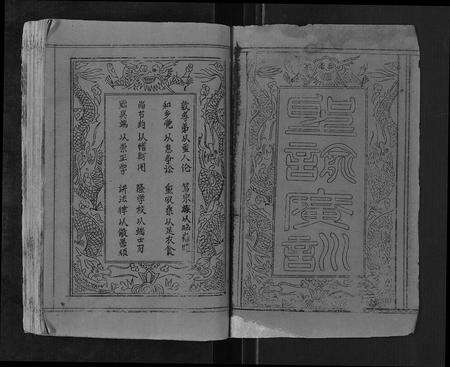 聖諭廣訓
敦孝弟以重人倫 篤宗族以昭雍睦
和乡党以息爭訟 重農桑以足衣食
尚节儉以惜財用 隆學校以端士習
黜異端以崇正學 講法律以儆愚頑